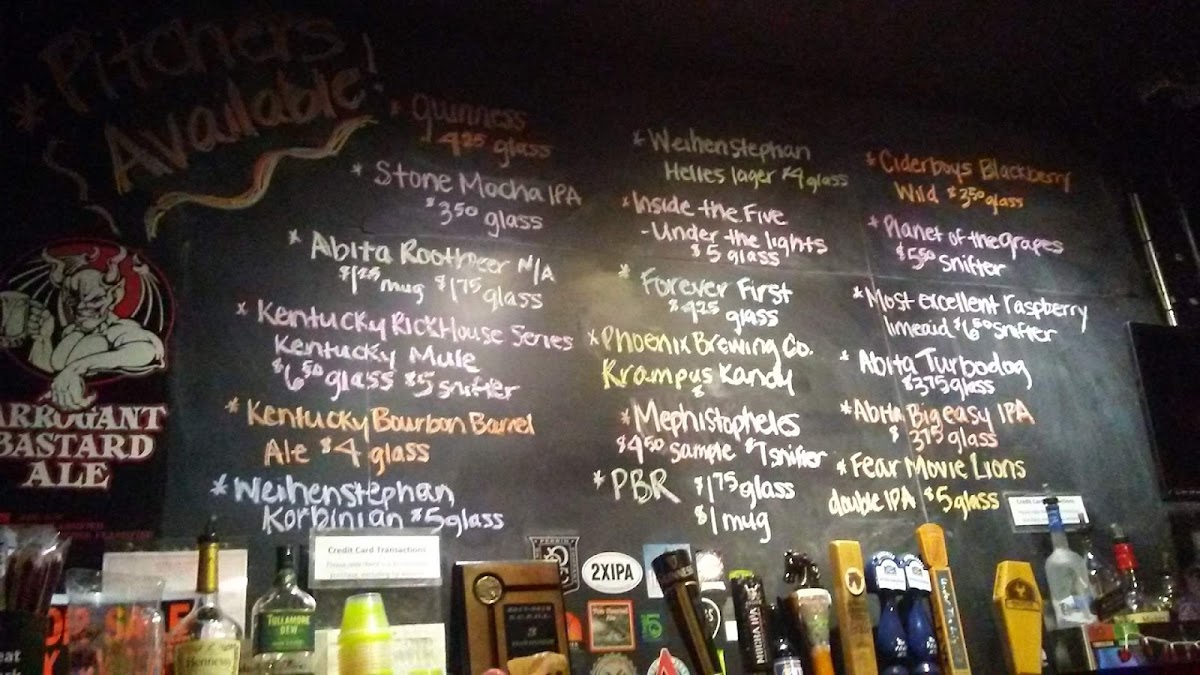 * Pitchers
Available!
* Guinness
4.25 glass
* Stone Mocha IPA
$3.50 glass
* Abita Rootbeer N/A
$1.25 mug $1.75 glass
* Kentucky RickHouse Series
Kentucky Mule
$6.50 glass $5 snifter
* Kentucky Bourbon Barrel
Ale $4 glass
* Weihenstephan
Korbinian $5 glass
* Weihenstephan
Helles lager $4 glass
* Inside the Five
-Under the lights
$5 glass
* Forever First
$4.25 glass
* Phoenix Brewing Co.
Krampus Kandy
$
* Mephistopheles
$4.50 sample $7 snifter
* PBR $1.75 glass
$1 mug
* Ciderboys Blackberry
Wild $3.50 glass
* Planet of the grapes
$5.50 snifter
* Most excellent raspberry
limeaid $6.50 snifter
* Abita Turbodog
$3.75 glass
* Abita Big easy IPA
$3.75 glass
* Fear Movie Lions
double IPA $5 glass
ARROGANT
BASTARD
ALE
Credit Card Transactions
2XIPA
TULLAMORE
DEW
Hennessy